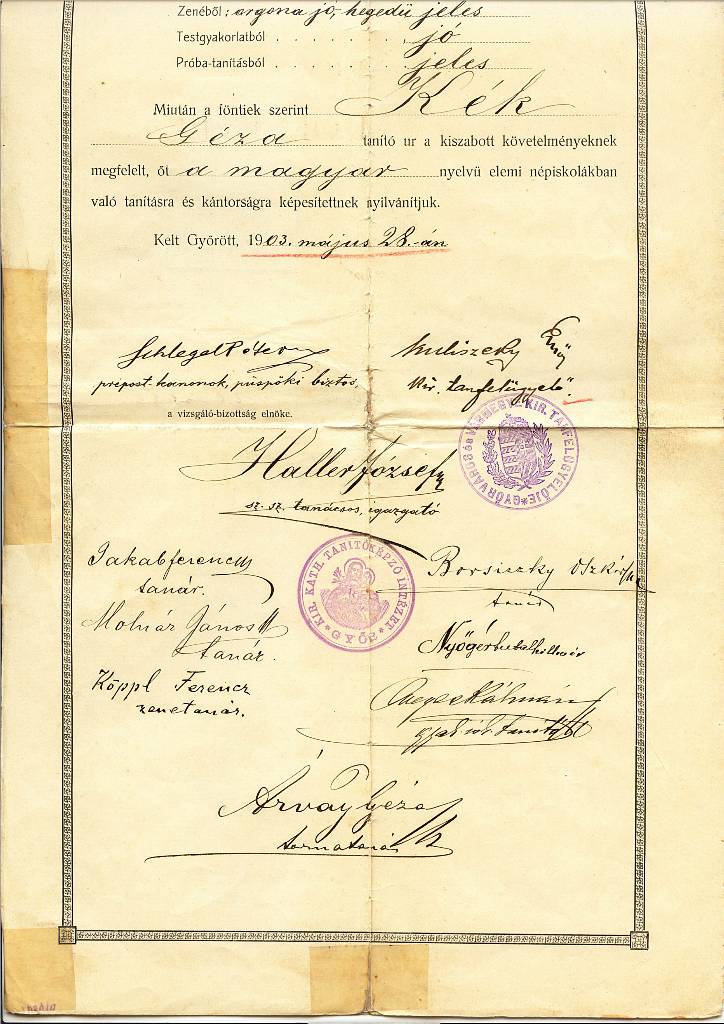 Zenéből: orgona jó, hegedü jeles
Testgyakorlatból . . . . . . . jó
Próba-tanításból . . . . . . . jeles
Miután a föntiek szerint Kék
Géza tanító ur a kiszabott követelményeknek
megfelelt, őt a magyar nyelvü elemi népiskolákban
való tanításra és kántorságra képesítettnek nyilvánítjuk.
Kelt Győrött, 1903. május 28.-án
Schlegel Péter
prépost kanonok, püspöki biztos,
a vizsgáló-bizottság elnöke.
Kuliszeky Ernő
kir. tanfelügyelő.
GYŐR VÁROS ÉS VÁRMEGYE KIR. TANFELÜGYELŐJE
Haller József
sz. sz. tanácsos, igazgató
KIR. KATH. TANITÓKÉPZŐ INTÉZET
GYŐR
Jakab Ferenc
tanár.
Borsiczky Oszkár
tanár
Molnár János
tanár.
Köppl Ferencz
zenetanár.
Kálmán
Árvay Géza
tornatanár